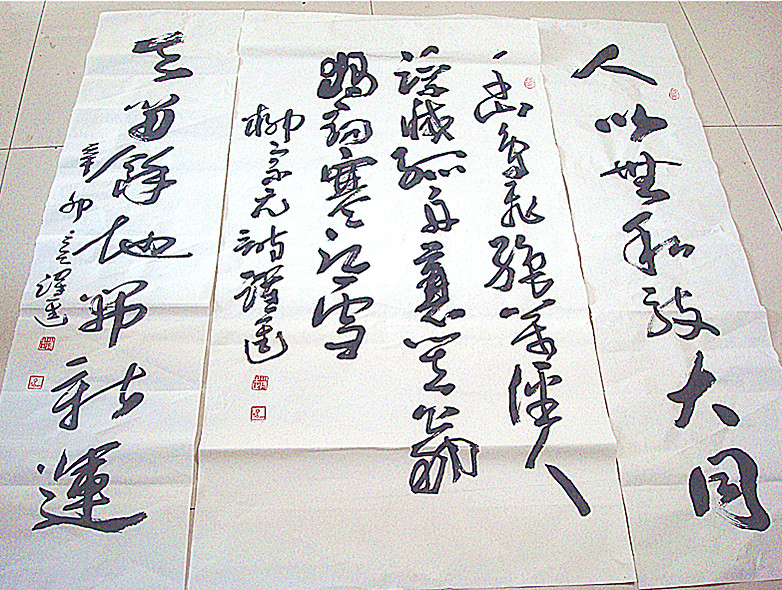 人以無私致大同
千山鳥飛絕萬徑人
蹤滅孤舟蓑笠翁
獨釣寒江雪
柳宗元詩
天留餘地開新運
辛卯